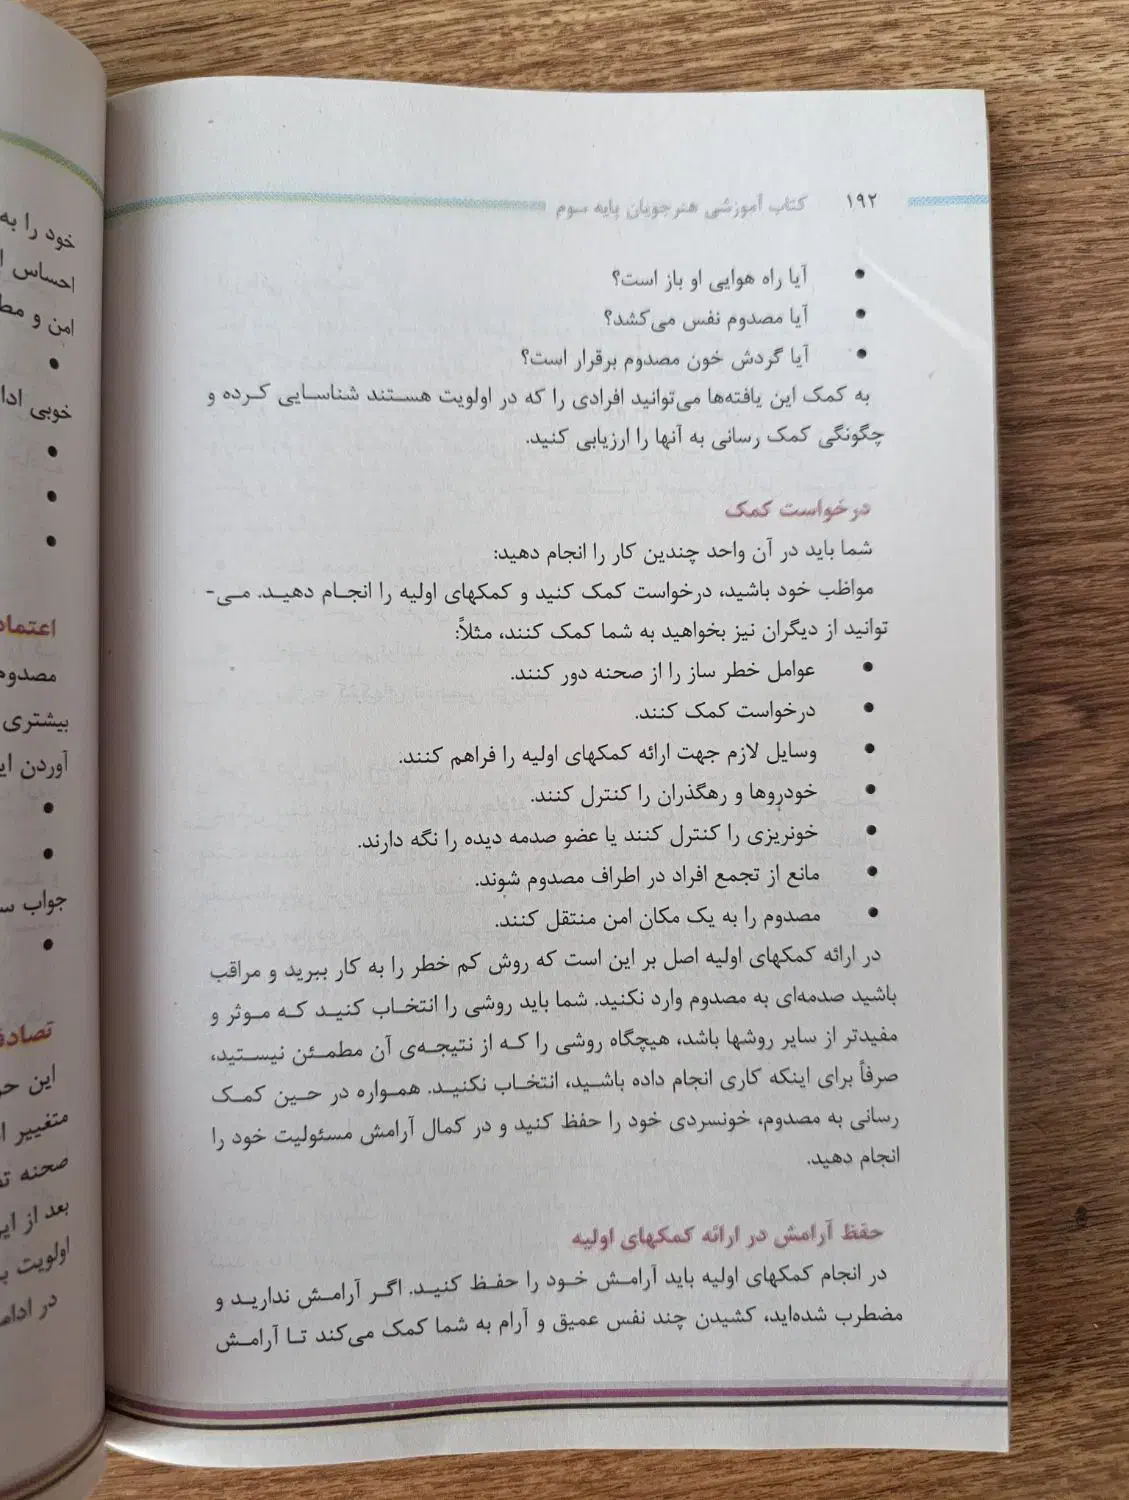 ۱۹۲ کتاب آموزشی هنرجویان پایه سوم
• آیا راه هوایی او باز است؟
• آیا مصدوم نفس می‌کشد؟
• آیا گردش خون مصدوم برقرار است؟
به کمک این یافته‌ها می‌توانید افرادی را که در اولویت هستند شناسایی کرده و
چگونگی کمک رسانی به آنها را ارزیابی کنید.
درخواست کمک
شما باید در آن واحد چندین کار را انجام دهید:
مواظب خود باشید، درخواست کمک کنید و کمکهای اولیه را انجام دهید. می-
توانید از دیگران نیز بخواهید به شما کمک کنند، مثلاً:
• عوامل خطر ساز را از صحنه دور کنند.
• درخواست کمک کنند.
• وسایل لازم جهت ارائه کمکهای اولیه را فراهم کنند.
• خودروها و رهگذران را کنترل کنند.
• خونریزی را کنترل کنند یا عضو صدمه دیده را نگه دارند.
• مانع از تجمع افراد در اطراف مصدوم شوند.
• مصدوم را به یک مکان امن منتقل کنند.
در ارائه کمکهای اولیه اصل بر این است که روش کم خطر را به کار ببرید و مراقب
باشید صدمه‌ای به مصدوم وارد نکنید. شما باید روشی را انتخاب کنید که موثر و
مفیدتر از سایر روشها باشد، هیچگاه روشی را که از نتیجه‌ی آن مطمئن نیستید،
صرفاً برای اینکه کاری انجام داده باشید، انتخاب نکنید. همواره در حین کمک
رسانی به مصدوم، خونسردی خود را حفظ کنید و در کمال آرامش مسئولیت خود را
انجام دهید.
حفظ آرامش در ارائه کمکهای اولیه
در انجام کمکهای اولیه باید آرامش خود را حفظ کنید. اگر آرامش ندارید و
مضطرب شده‌اید، کشیدن چند نفس عمیق و آرام به شما کمک می‌کند تا آرامش
خود را به
احساس
امن و
•
خوبی
•
•
•
مصدوم
بیشتری
آوردن
•
•
جواب
•
این
متغییر
صحنه
بعد از
اولویت
در